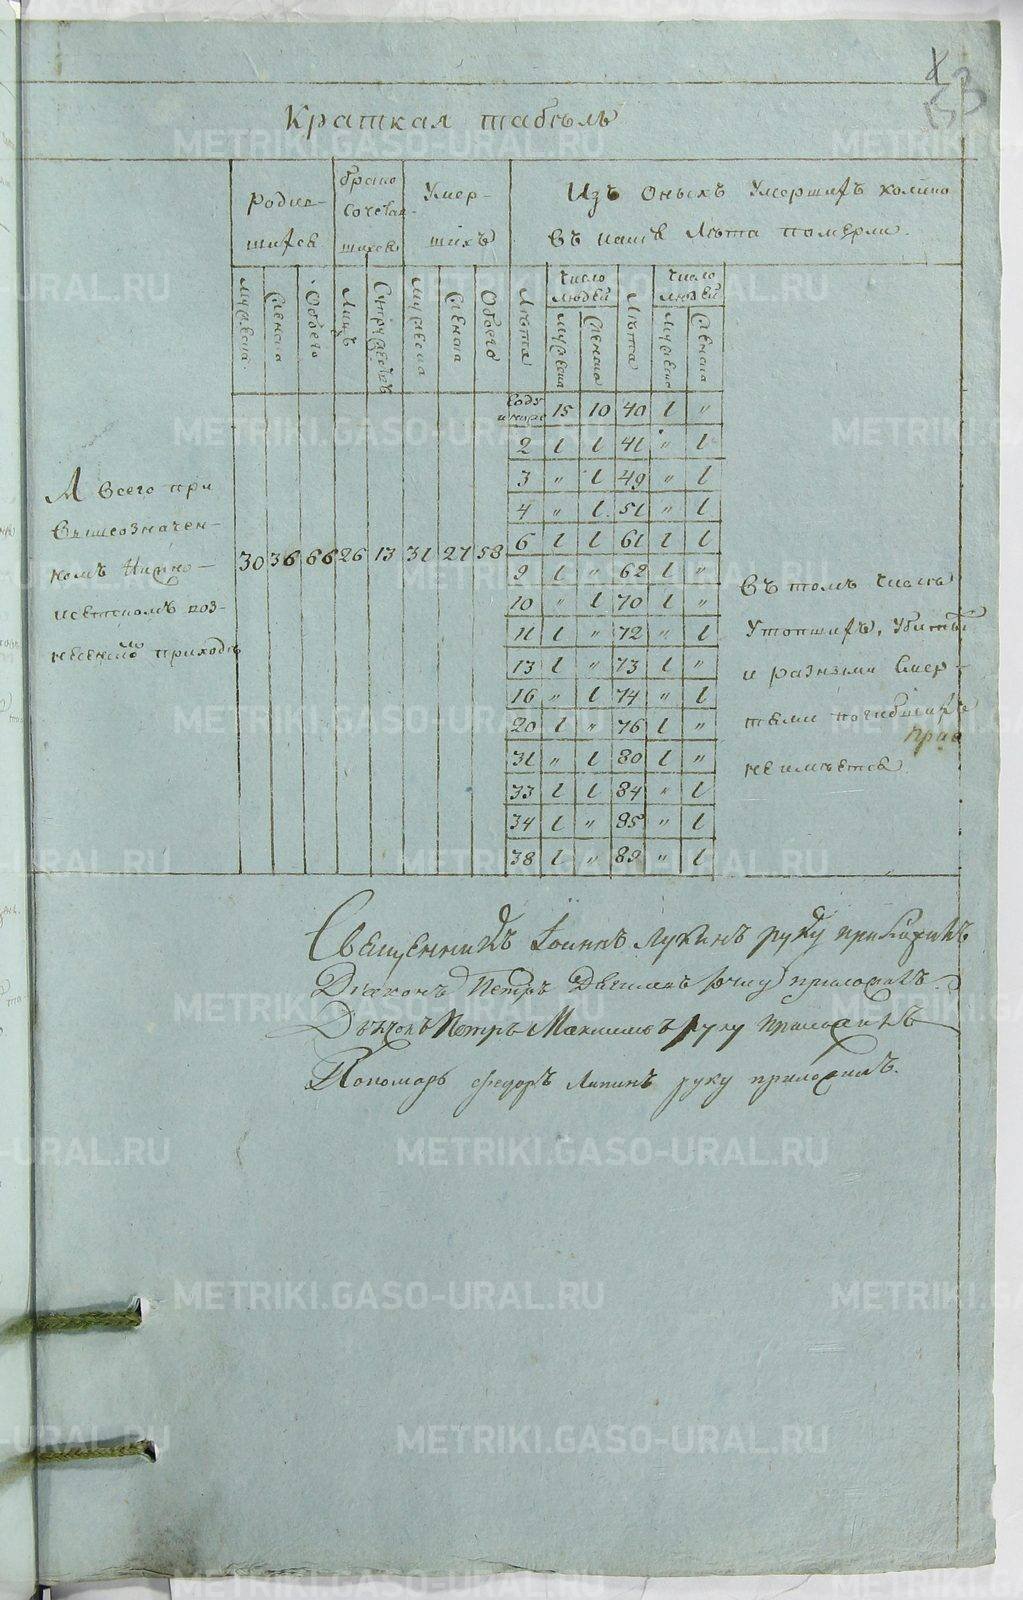 53
Краткая табѣль
Родив-
шихся
брако
сочетав-
шихся
Умер-
шихъ
Изъ оныхъ умершихъ колико
въ каıя лѣта померли.
мужеска
женска
Обоего
Лицъ
Супружествъ
мужеска
женска
Обоего
Лѣта
число людей
мужеска
женска
Лѣта
число людей
мужеска
женска
А всего при
вышеозначен-
номъ
вознесенской приходѣ
30 36 66 26 13 31 27 58
году 15 10 40 1 "
2 1 1 41 " 1
3 " 1 49 " 1
4 " 1 51 " 1
6 1 1 61 1 1
9 1 " 62 1 "
10 " 1 70 1 "
11 1 " 72 " 1
13 1 " 73 1 "
16 " 1 74 " 1
20 1 " 76 1 "
31 " 1 80 1 "
33 1 1 84 " 1
34 1 " 85 " 1
38 1 " 89 " 1
въ томъ числѣ
утопшихъ, убитыхъ
и разными смер-
тьми погибшихъ
не имѣется
Священникъ Iоаннъ Лукинъ руку приложилъ
Дıаконъ Петръ руку приложилъ.
Дьячокъ Петръ руку приложилъ
Пономарь Федоръ Ляпинъ руку приложилъ.
METRIKI.GASO-URAL.RU